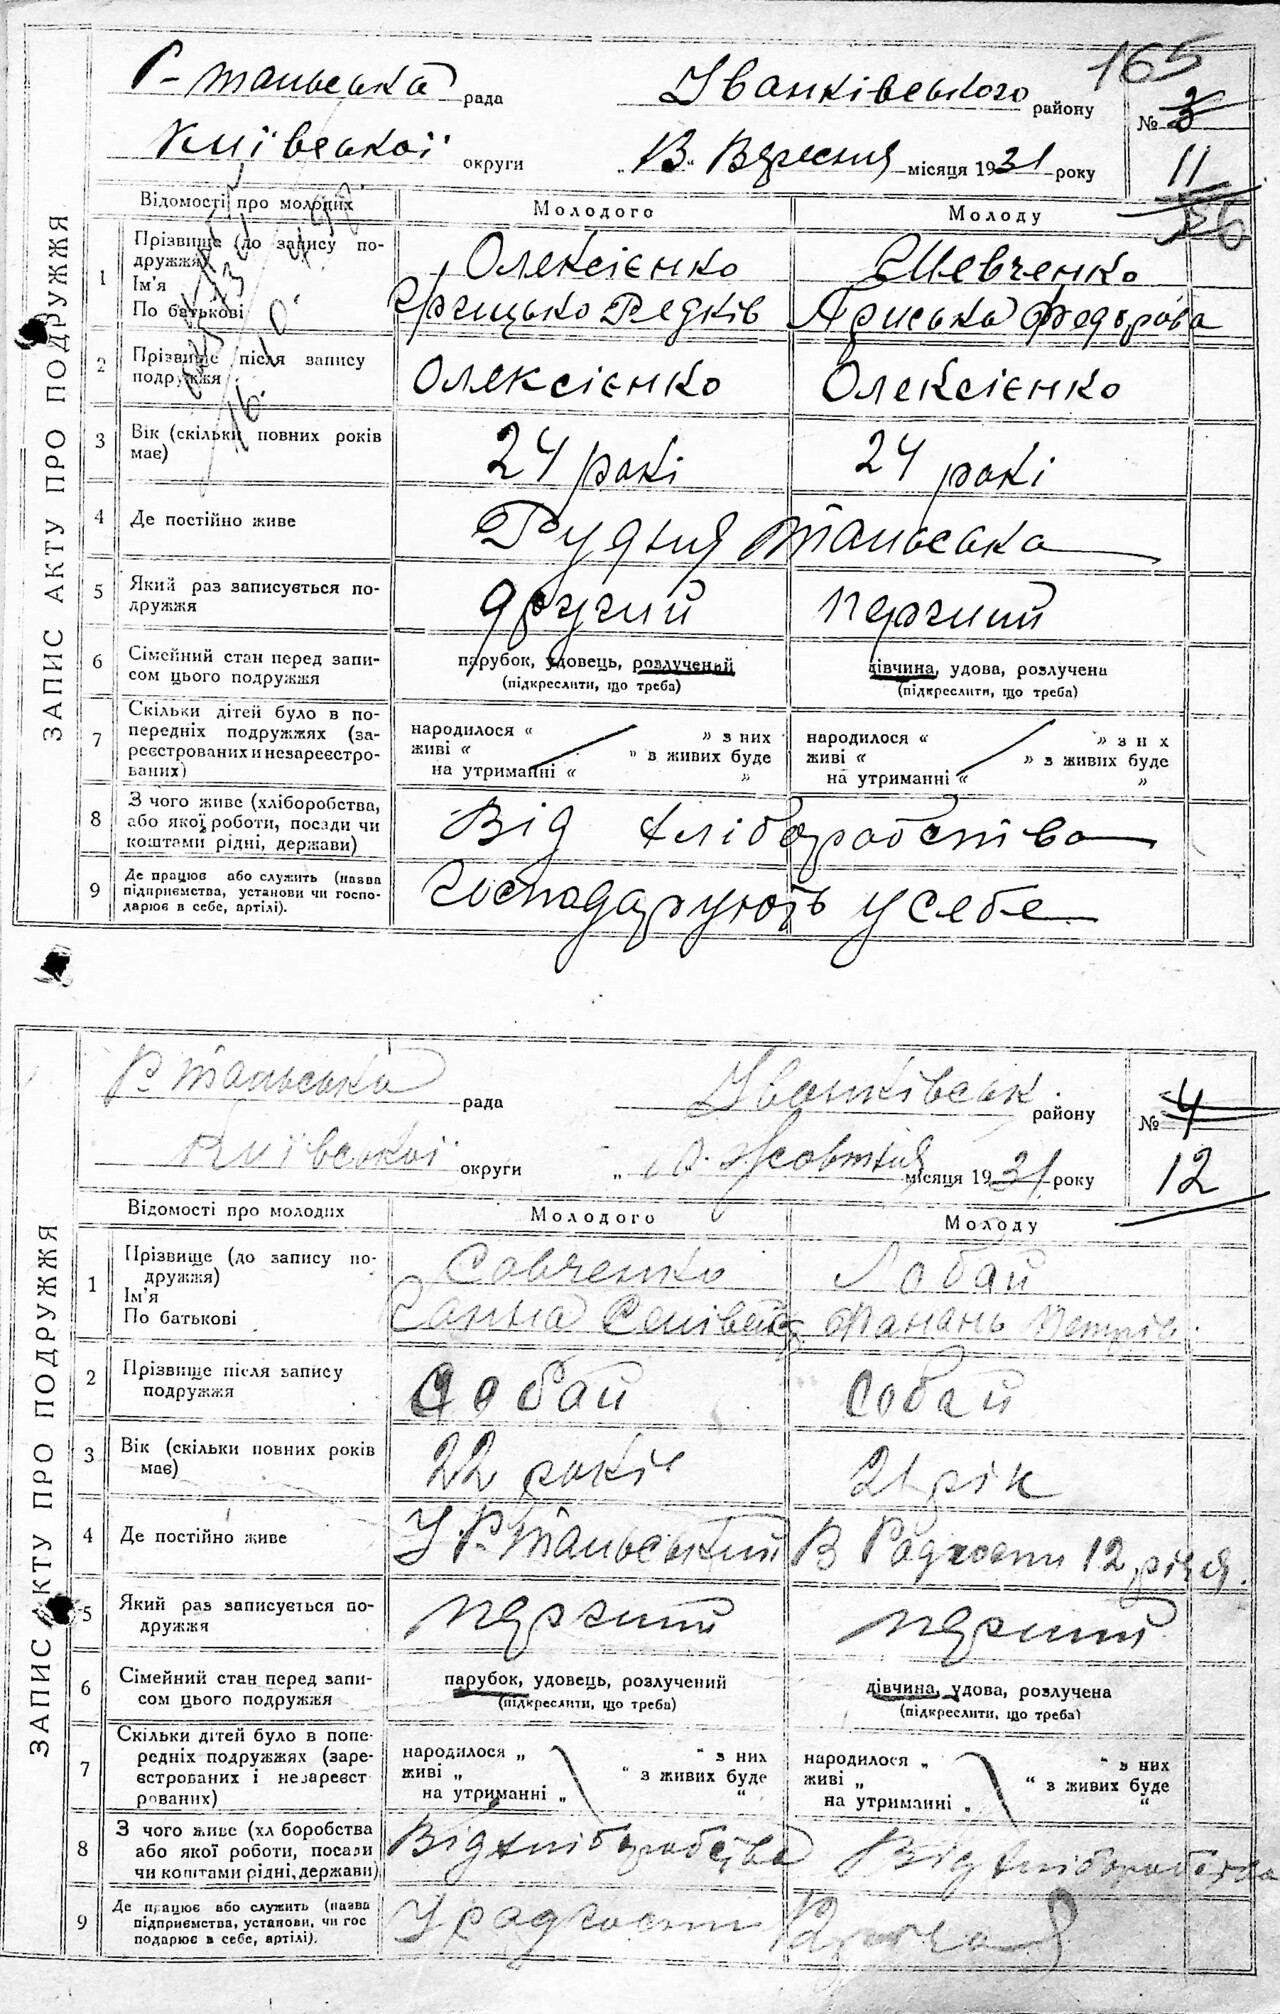 165
Р-тальська рада Іванківського району № 3
11
56
Київської округи „13" Вересня місяця 1931 року
ЗАПИС АКТУ ПРО ПОДРУЖЖЯ
Відомості про молодих Молодого Молоду
1 Прізвище (до запису подружжя) Олексієнко Шевченко
Ім'я
По батькові Грицько Федорова
2 Прізвище після запису подружжя Олексієнко Олексієнко
3 Вік (скільки повних років має) 24 рокі 24 рокі
4 Де постійно живе Рудня Тальська
5 Який раз записується подружжя другий перший
6 Сімейний стан перед записом цього подружжя парубок, удовець, розлучений дівчина, удова, розлучена
(підкреслити, що треба) (підкреслити, що треба)
7 Скільки дітей було в попередніх подружжях (зареєстрованих и незареєстрованих) народилося “ ” з них народилося “ ” з них
живі “ ” в живих буде живі “ ” з живих буде
на утриманні “ ” на утриманні “ ”
8 З чого живе (хліборобства, або якої роботи, посади чи коштами рідні, держави) Від хліборобства
9 Де працює або служить (назва підприємства, установи чи господарює в себе, артілі). Господарують у себе
Р. Тальська рада Іванківськ. району № 4
12
Київської округи „ Жовтня місяця 1931 року
ЗАПИС АКТУ ПРО ПОДРУЖЖЯ
Відомості про молодих Молодого Молоду
1 Прізвище (до запису подружжя) Савченко Лобай
Ім'я
По батькові Ганна
2 Прізвище після запису подружжя Лобай Лобай
3 Вік (скільки повних років має) 22 років 21 рік
4 Де постійно живе У Р. Тальський В Радгоспи 12
5 Який раз записується подружжя перший перший
6 Сімейний стан перед записом цього подружжя парубок, удовець, розлучений дівчина, удова, розлучена
(підкреслити, що треба) (підкреслити, що треба)
7 Скільки дітей було в попередніх подружжях (зареєстрованих і незареєстрованих) народилося „ “ з них народилося „ “ з них
живі „ “ з живих буде живі „ “ з живих буде
на утриманні „ “ на утриманні „ “
8 З чого живе (хліборобства або якої роботи, посади чи коштами рідні, держави) Від хліборобства Від хліборобства
9 Де працює або служить (назва підприємства, установи, чи господарює в себе, артілі). У радгоспи